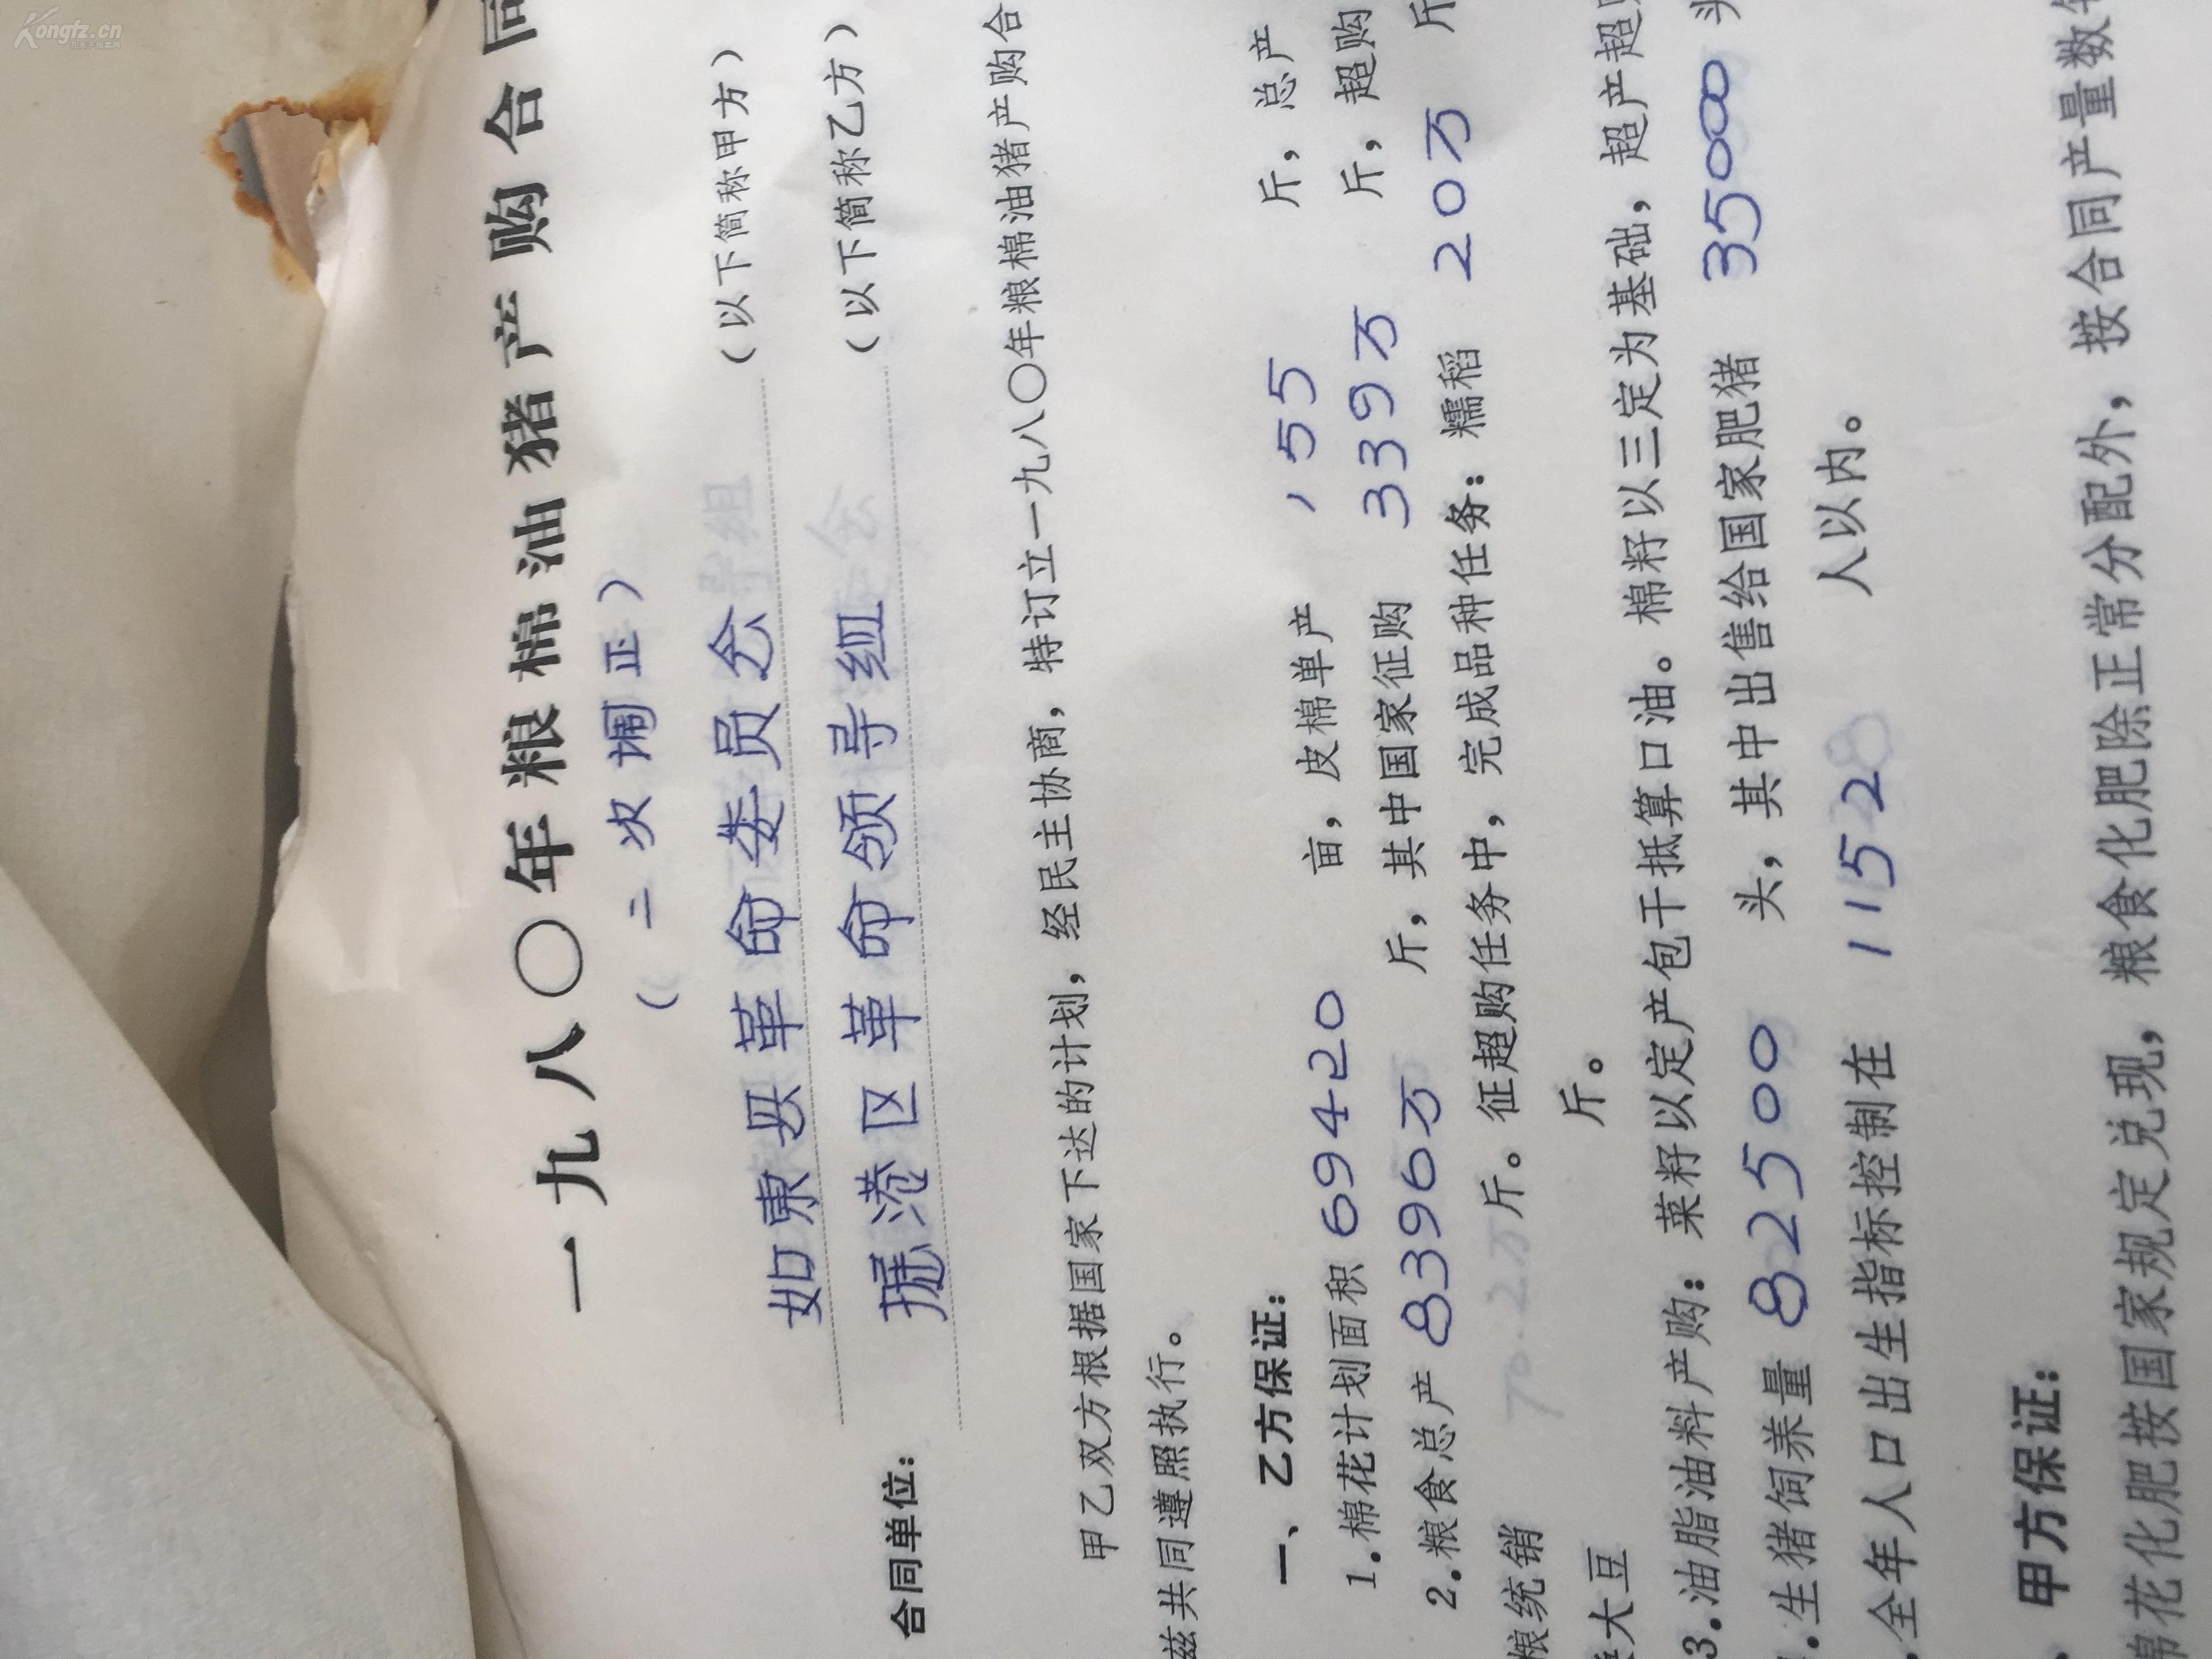 Kongfz.cn
一九八〇年粮棉油猪产购合同
（二次调正）
如东县革命委员会（以下简称甲方）
合同单位：
掘港区革命领导组（以下简称乙方）
甲乙双方根据国家下达的计划，经民主协商，特订立一九八〇年粮棉油猪产购合
兹共同遵照执行。
一、乙方保证：
1.棉花计划面积 69420 亩，皮棉单产 155 斤，总产
2.粮食总产 8396万 斤，其中国家征购 339万 斤，超购
粮统销 70.2万 斤。征超购任务中，完成品种任务：糯稻 20万 斤
大豆 斤。
3.油脂油料产购：菜籽以定产包干抵算口油。棉籽以三定为基础，超产超
.生猪饲养量 82500 头，其中出售给国家肥猪 35000 头
.全年人口出生指标控制在 1152 人以内。
、甲方保证：
棉花化肥按国家规定兑现，粮食化肥除正常分配外，按合同产量数